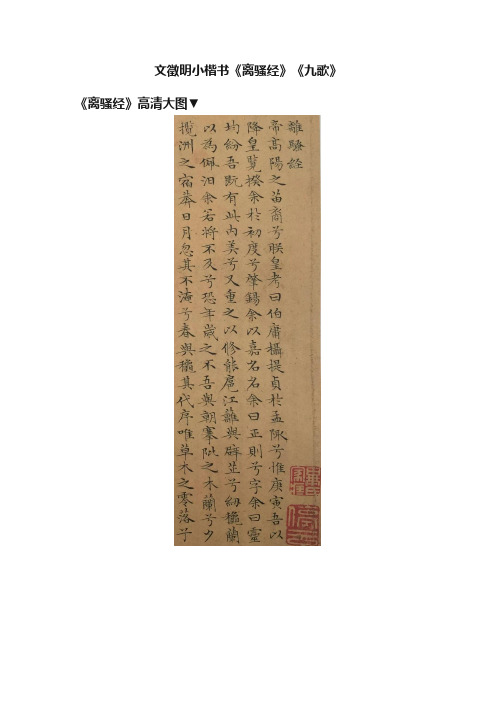 文徵明小楷书《离骚经》《九歌》
《离骚经》高清大图▼
離騷經
帝高陽之苗裔兮朕皇考曰伯庸攝提貞於孟陬兮惟庚寅吾以
降皇覽揆余於初度兮肇錫余以嘉名名余曰正則兮字余曰靈
均紛吾既有此內美兮又重之以脩能扈江蘺與辟芷兮紉穐蘭
以為佩汨余若將不及兮恐年歲之不吾與朝搴阰之木蘭兮夕
攬洲之宿莽日月忽其不淹兮春與穐其代序唯草木之零落兮